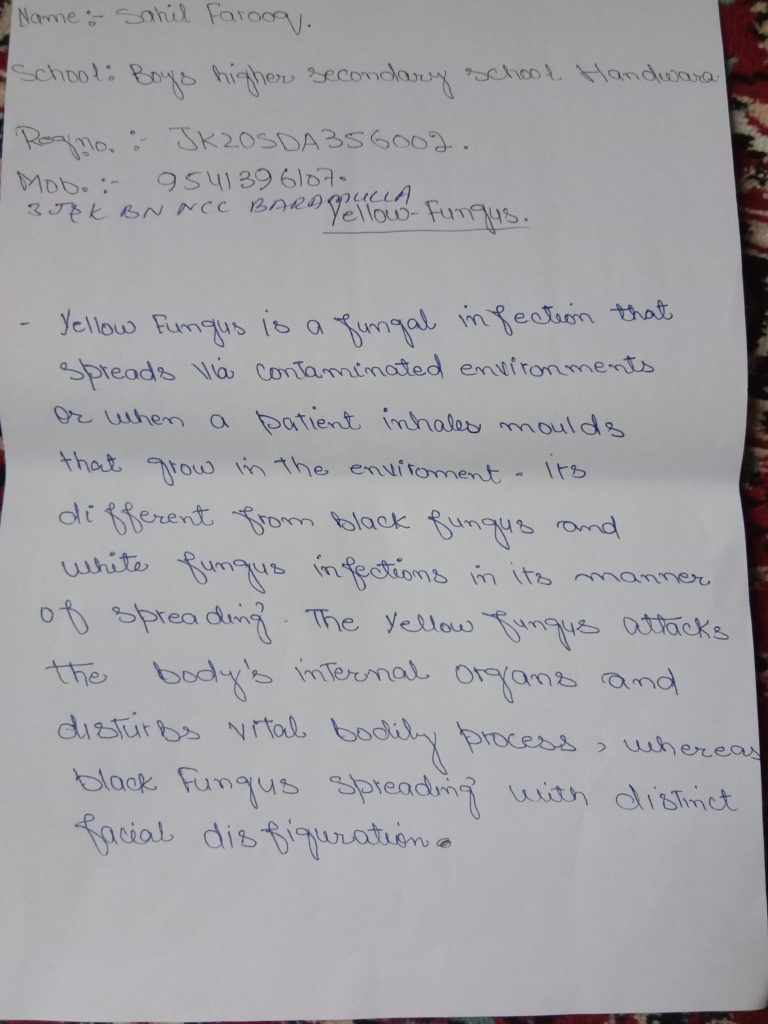 Name:- Sahil Farooq.
School: Boys higher secondary school Handwara
Reg no. :- JK20SDA356002.
Mob. :- 9541396107.
3 J&K BN NCC BARAMULLA
Yellow-Fungus.
- Yellow Fungus is a fungal infection that
spreads via contaminated environments
or when a patient inhales moulds
that grow in the enviroment. Its
different from black fungus and
white fungus infections in its manner
of spreading. The Yellow fungus attacks
the body's internal organs and
disturbs vital bodily process, whereas
black Fungus spreading with distinct
facial disfiguration.